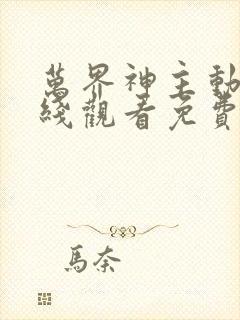 萬界神主動
綫觀看免費
馬奈